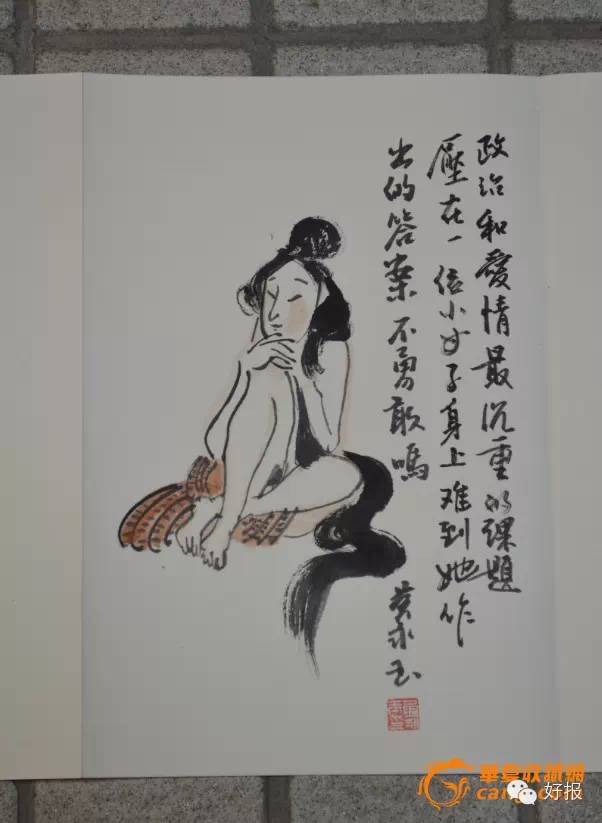 政治和爱情最沉重的課題
壓在一位小女子身上难到她作
出的答案不勇敢嗎
黄永玉
華夏收藏網
好报